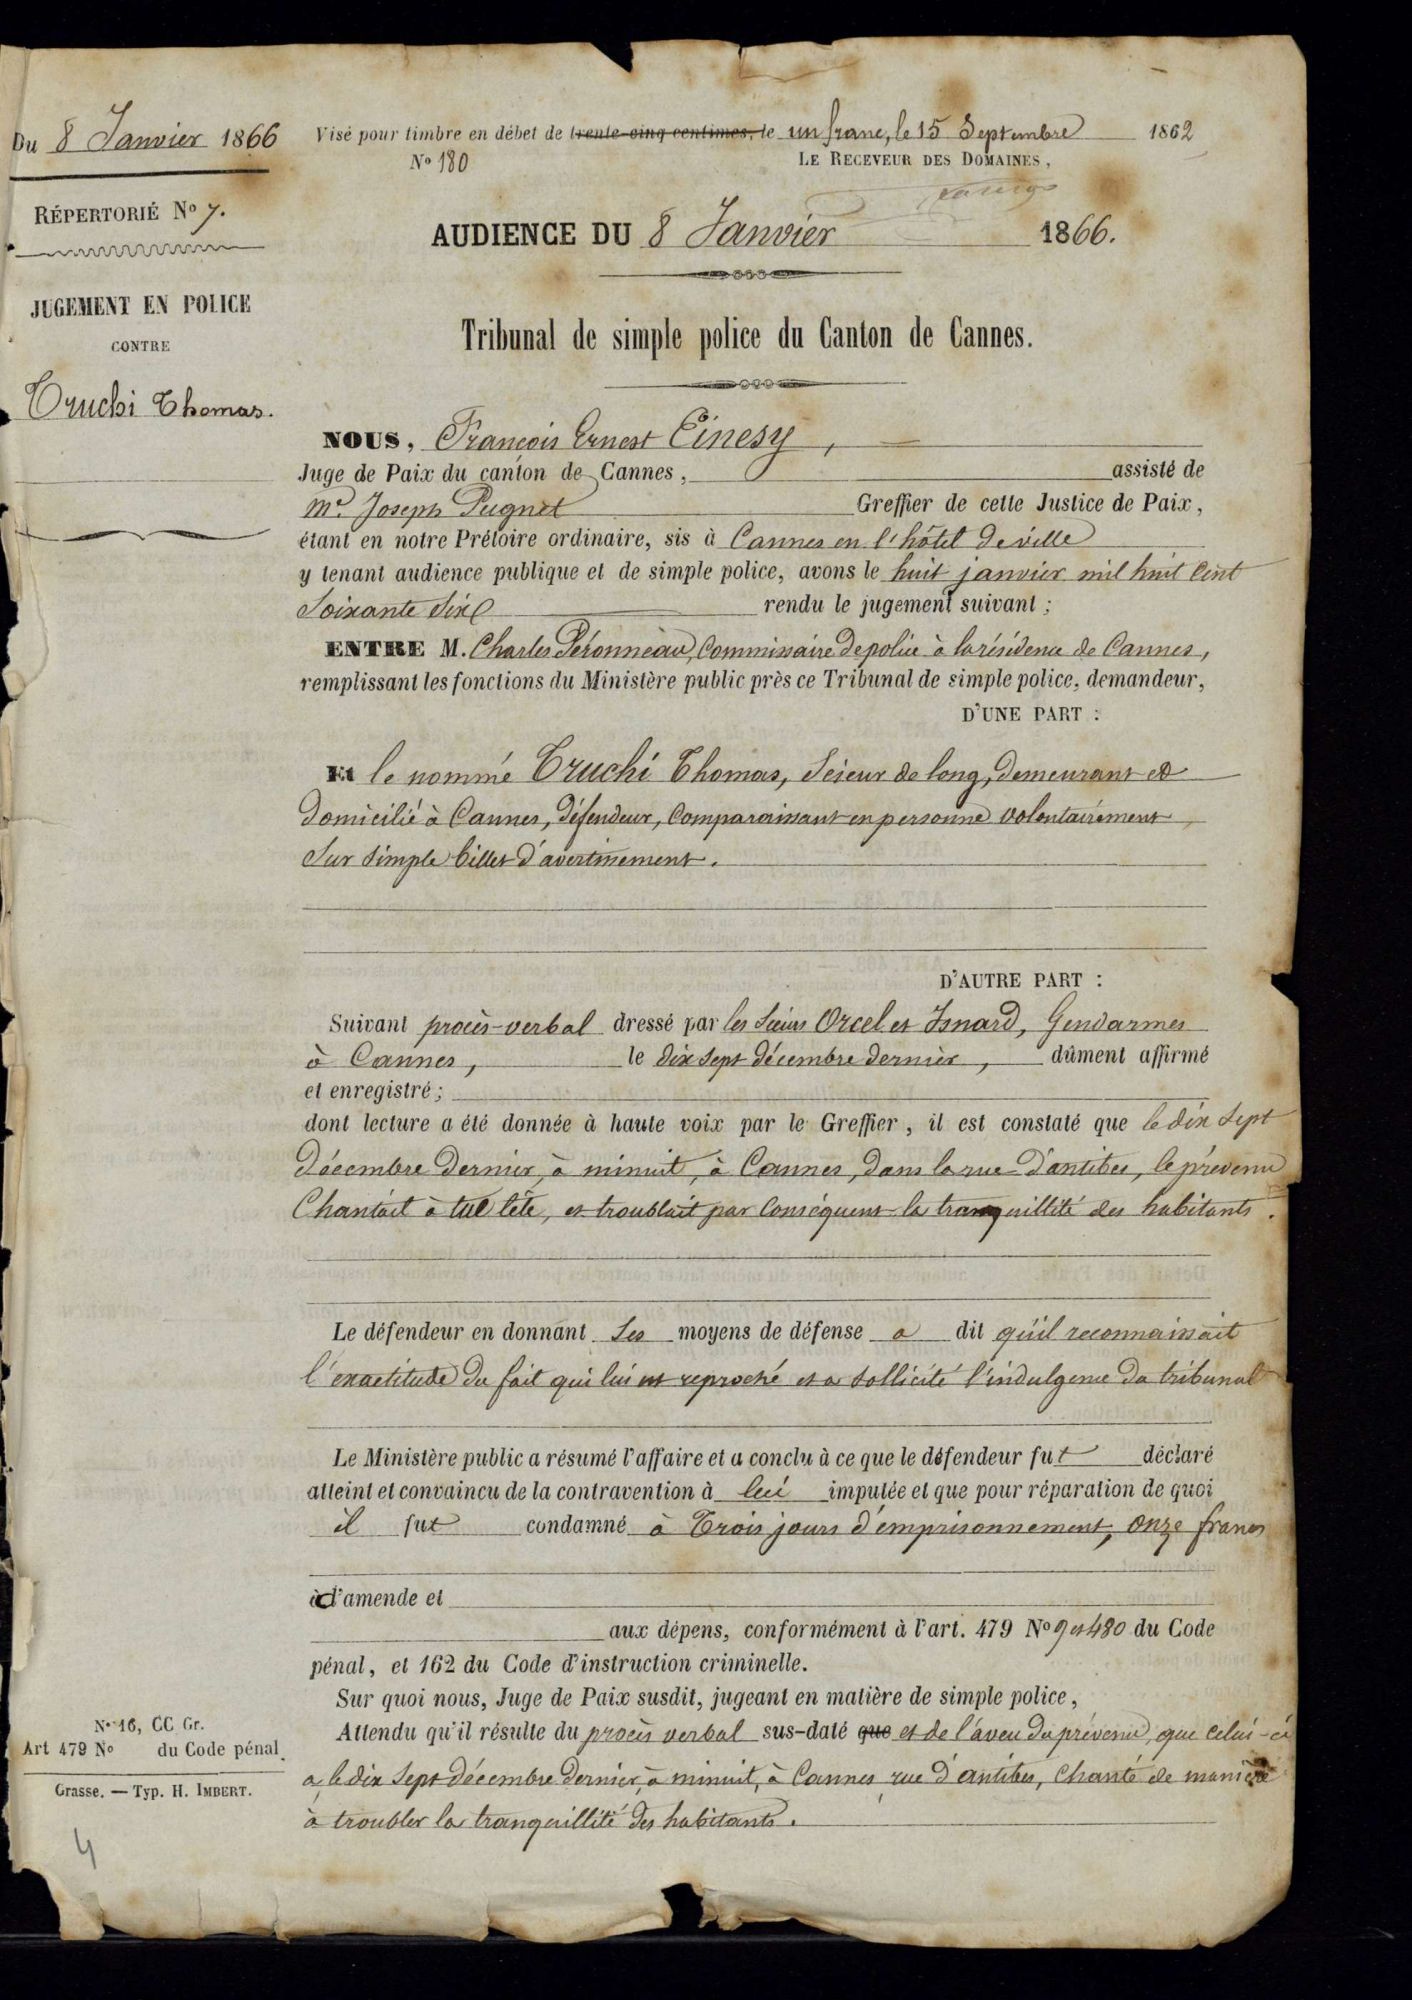 Du 8 Janvier 1866
RÉPERTORIÉ No 7.
JUGEMENT EN POLICE
CONTRE
Truchi Thomas.
Visé pour timbre en débet de trente-cinq centimes, le un franc, le 15 Septembre 1862
No 180 LE RECEVEUR DES DOMAINES,
AUDIENCE DU 8 Janvier 1866.
Tribunal de simple police du Canton de Cannes.
NOUS, François Ernest Cinesy,
Juge de Paix du canton de Cannes, assisté de
Me. Joseph Pugnet Greffier de cette Justice de Paix,
étant en notre Prétoire ordinaire, sis à Cannes en l'hôtel de ville
y tenant audience publique et de simple police, avons le huit janvier mil huit cent
Soixante Six rendu le jugement suivant ;
ENTRE M. Charles Péronneau, Commissaire de police à la résidence de Cannes,
remplissant les fonctions du Ministère public près ce Tribunal de simple police, demandeur,
D'UNE PART :
Et le nommé Truchi Thomas, Scieur de long, demeurant et
domicilié à Cannes, défendeur, Comparaissant en personne volontairement
Sur simple billet d'avertissement.
D'AUTRE PART :
Suivant procès-verbal dressé par les Sieurs Orcel et Isnard, Gendarmes
à Cannes, le dix sept décembre dernier, dûment affirmé
et enregistré ;
dont lecture a été donnée à haute voix par le Greffier, il est constaté que le dix Sept
décembre dernier, à minuit, à Cannes, dans la rue d'antibes, le prévenu
Chantait à tue tête, et troublait par Conséquent la tranquillité des habitants.
Le défendeur en donnant Ses moyens de défense a dit qu'il reconnaissait
l'exactitude du fait qui lui est reproché et a Sollicité l'indulgence du tribunal
Le Ministère public a résumé l'affaire et a conclu à ce que le défendeur fut déclaré
atteint et convaincu de la contravention à lui imputée et que pour réparation de quoi
il fut condamné à Trois jours d'emprisonnement, onze francs
d'amende et
aux dépens, conformément à l'art. 479 No 9 et 480 du Code
pénal, et 162 du Code d'instruction criminelle.
Sur quoi nous, Juge de Paix susdit, jugeant en matière de simple police,
Attendu qu'il résulte du procès verbal sus-daté que et de l'aveu du prévenu, que celui-ci
a, le dix Sept décembre dernier, à minuit, à Cannes, rue d'antibes, Chanté de manière
à troubler la tranquillité des habitants.
No 16, CC Gr.
Art 479 No du Code pénal.
Grasse. — Typ. H. IMBERT.
4